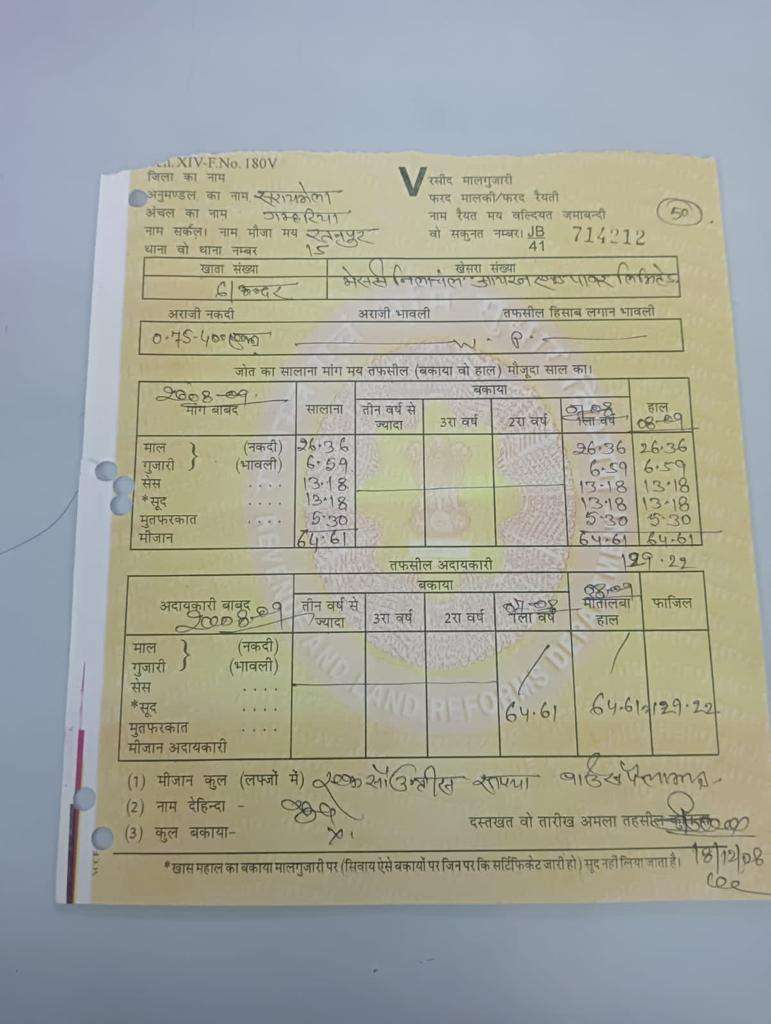 XIV-F.No. 180V
जिला का नाम
V रसीद मालगुजारी
अनुमण्डल का नाम सरायकेला
फरद मालकी/फरद रैयती
अंचल का नाम गम्हरिया
नाम रैयत मय वल्दियत जमाबन्दी
50
नाम सर्कल। नाम मौजा मय रतनपुर
वो सकुनत नम्बर। JB 41 714212
थाना वो थाना नम्बर 15
खाता संख्या
खेसरा संख्या
मेसर्स निलांचल आयरन एण्ड पावर लिमिटेड
अराजी नकदी
अराजी भावली
तफसील हिसाब लगान भावली
0.75.400
जोत का सालाना मांग मय तफसील (बकाया वो हाल) मौजूदा साल का।
2008-09
मांग बाबद
सालाना
बकाया
तीन वर्ष से ज्यादा
3रा वर्ष
2रा वर्ष
07-08
1ला वर्ष
हाल
08-09
माल (नकदी) 26.36 26.36 26.36
गुजारी (भावली) 6.59 6.59 6.59
सेस .... 13.18 13.18 13.18
*सूद .... 13.18 13.18 13.18
मुतफरकात .... 5.30 5.30 5.30
मीजान 64.61 64.61 64.61
तफसील अदायकारी
129.22
अदायकारी बाबद
2008-09
बकाया
तीन वर्ष से ज्यादा
3रा वर्ष
2रा वर्ष
07-08
1ला वर्ष
08-09
मोतालबा हाल
फाजिल
माल (नकदी)
गुजारी (भावली)
सेस ....
*सूद .... 64.61 64.61 129.22
मुतफरकात ....
मीजान अदायकारी
(1) मीजान कुल (लफ्जों में) एक सौ उन्तीस रूपया बाईस पैसा मात्र
(2) नाम देहिन्दा -
(3) कुल बकाया- x1
दस्तखत वो तारीख अमला तहसील
18/12/08
*खास महाल का बकाया मालगुजारी पर (सिवाय ऐसे बकायों पर जिन पर कि सर्टिफिकेट जारी हो) सूद नहीं लिया जाता है।